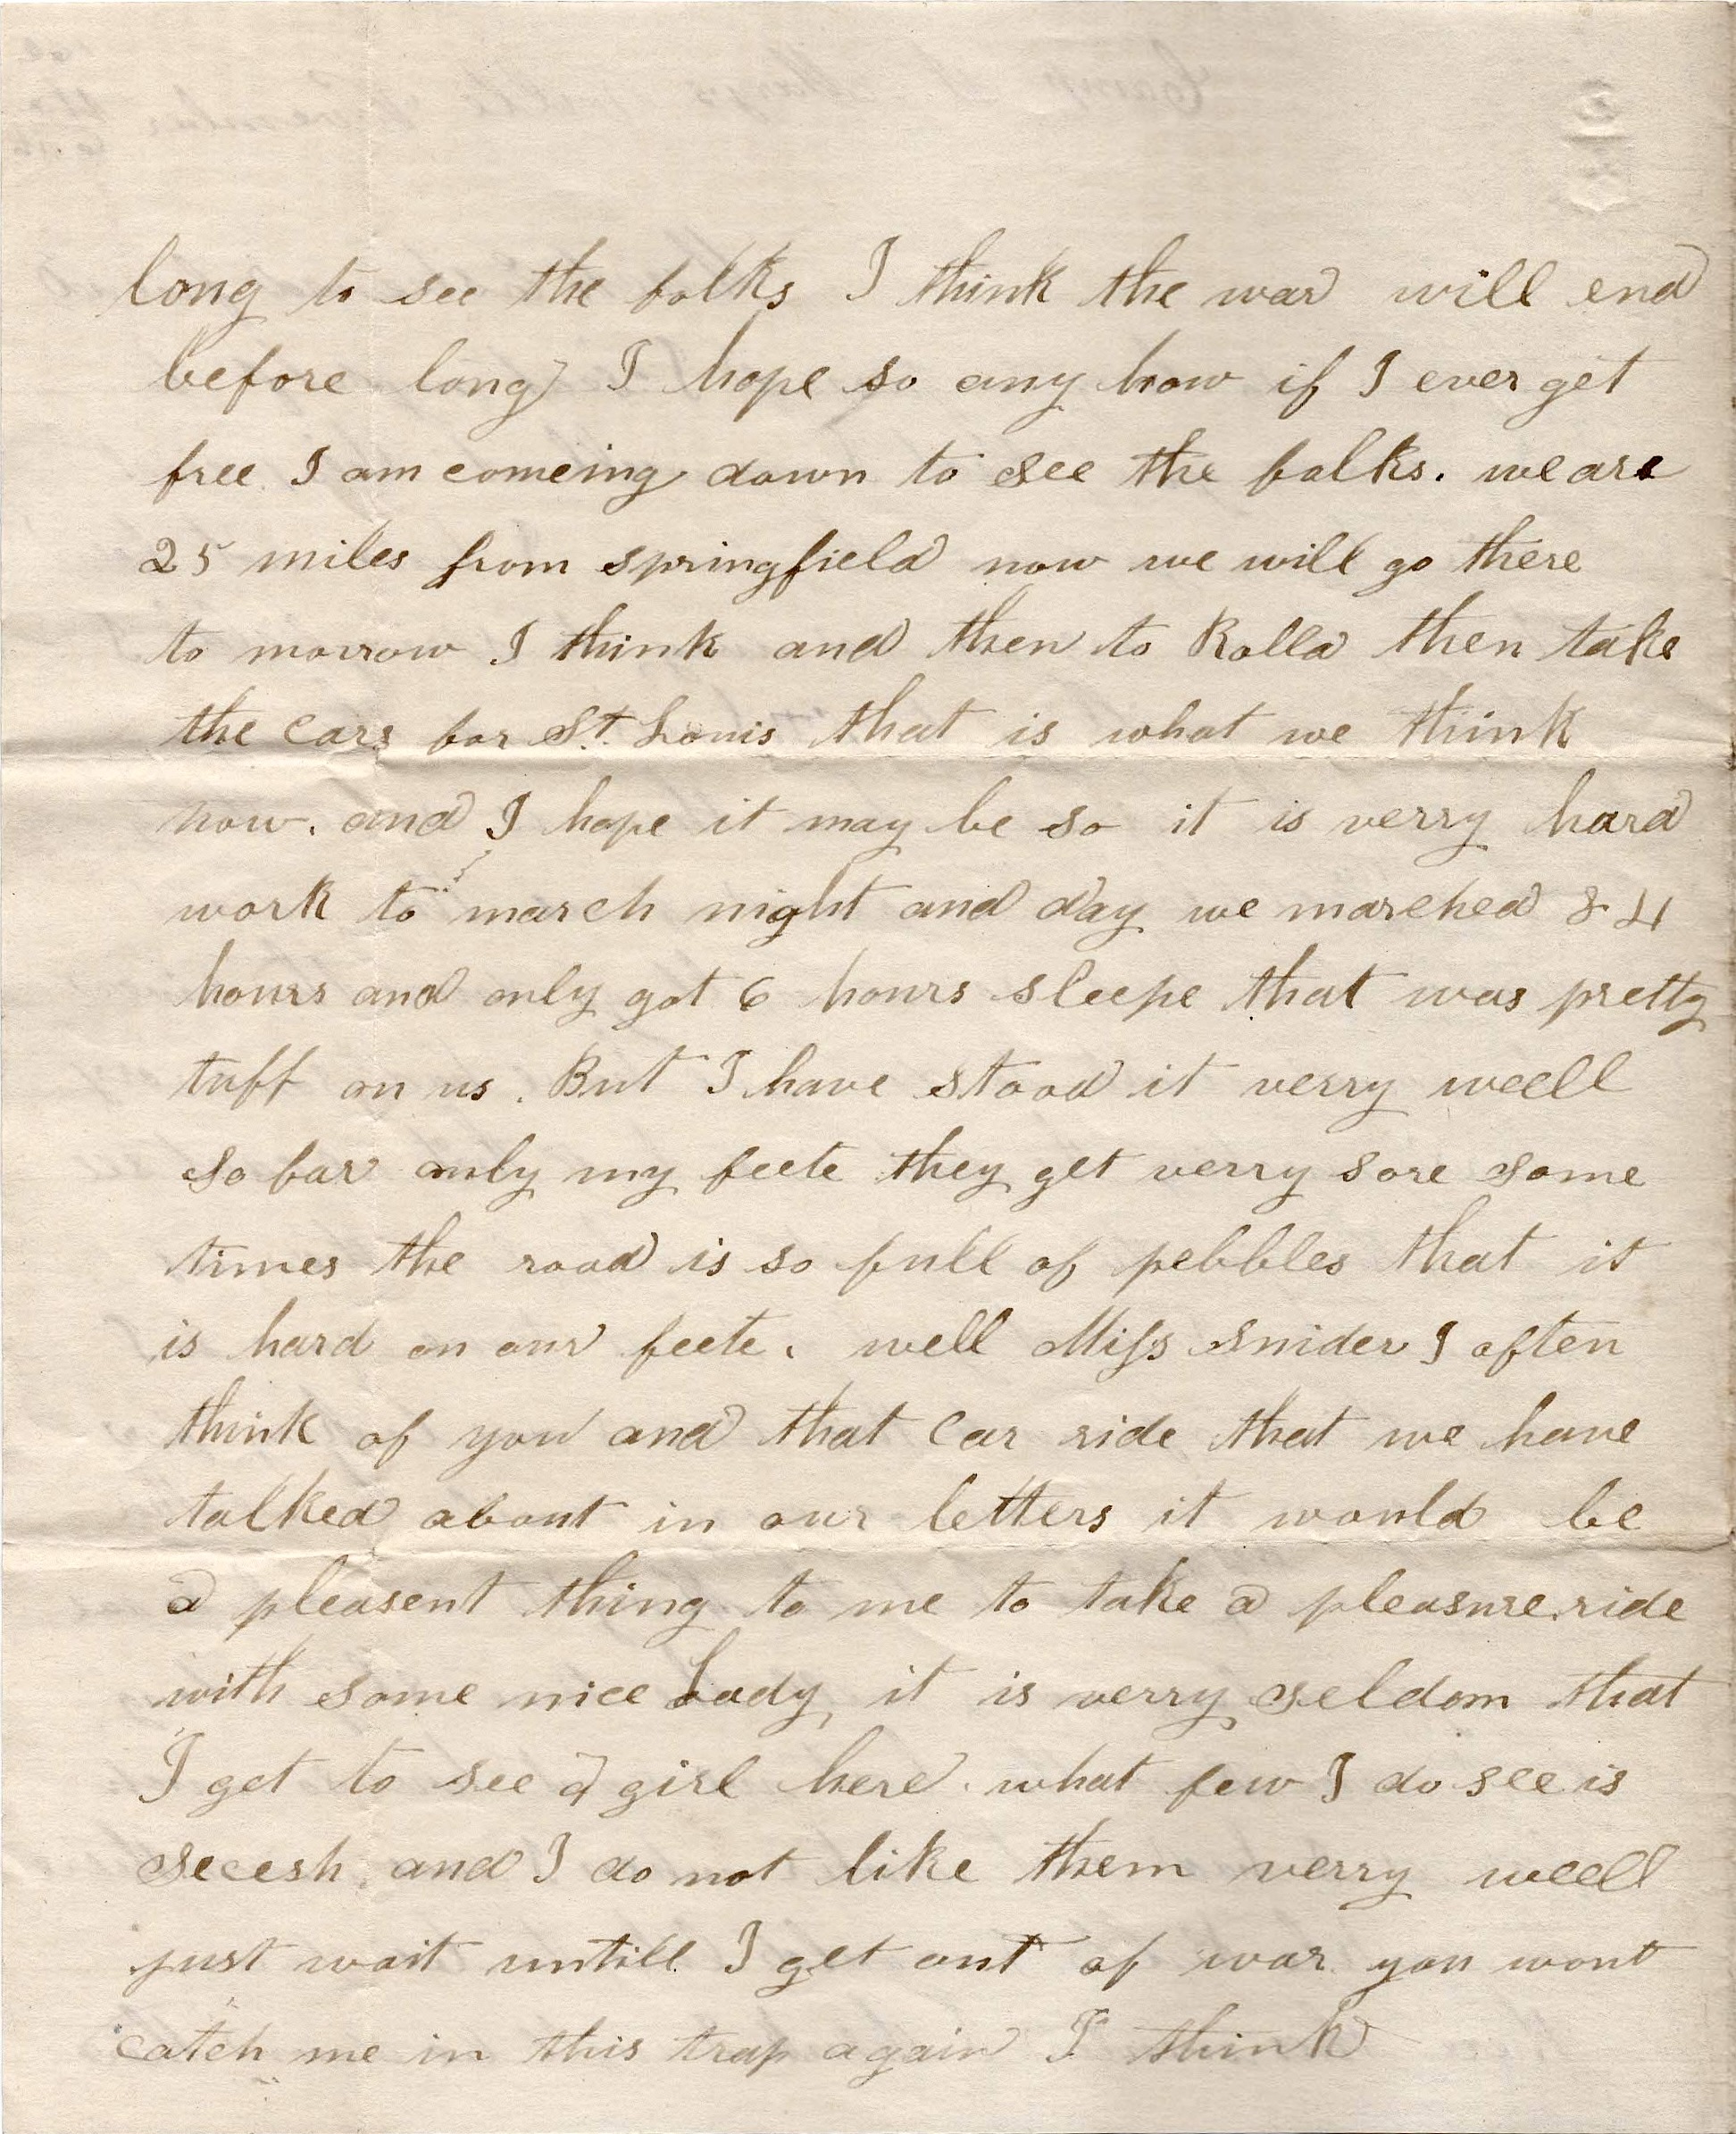 long to see the folks I think the war will end
before long I hope so any how if I ever get
free I am comeing down to see the folks. we are
25 miles from springfield now we will go there
to morrow I think and then to Rolla then take
the Cars for St. Louis that is what we think
now. and I hope it may be so it is verry hard
work to march night and day we marched 84
hours and only got 6 hours sleepe that was pretty
tuff on us. But I have stood it verry weell
so far only my feete they get verry sore some
times the road is so full of pebbles that it
is hard on our feete. well Miss Snider I often
think of you and that Car ride that we have
talked about in our letters it would be
a pleasent thing to me to take a pleasure ride
with some nice Lady, it is verry seldom that
I get to see a girl here. what few I do see is
secesh and I do not like them verry weell
just wait untill I get out of war you wont
catch me in this trap again I think